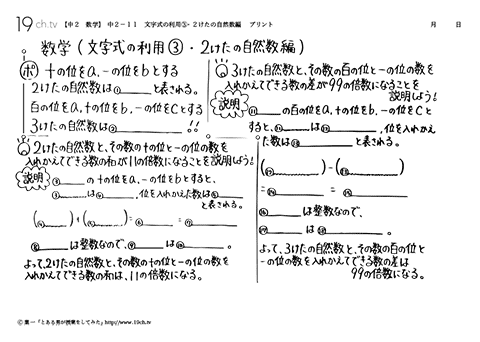 19ch.tv 【中2 数学】 中2-11 文字式の利用③・2けたの自然数編 プリント 月 日
数学（文字式の利用③・2けたの自然数編）
ポ 十の位をa, 一の位をbとする
2けたの自然数は① と表される。
百の位をa, 十の位をb, 一の位をcとする
3けたの自然数は② !!
Q 2けたの自然数と、その数の十の位と一の位の数を
入れかえてできる数の和が11の倍数になることを説明しよう!
説明 ③ の十の位をa, 一の位をbとすると、
は④ , 位を入れかえた数は⑤
と表される。
( ) + ( ) = ⑥ = ⑦
⑧ は整数なので、⑨ は⑩ 。
よって, 2けたの自然数と、その数の十の位と一の位の数を
入れかえてできる数の和は、11の倍数になる。
Q 3けたの自然数と、その数の百の位と一の位の数を
入れかえてできる数の差が99の倍数になることを
説明しよう!
説明 ⑪ の百の位をa, 十の位をb, 一の位をcと
すると、 は , 位を入れかえ
た数は と表される。
( ) - ( )
= =
は整数なので、
は 。
よって、3けたの自然数と、その数の百の位と
一の位の数を入れかえてできる数の差は
99の倍数になる。
© 葉一「とある男が授業をしてみた」http://www.19ch.tv